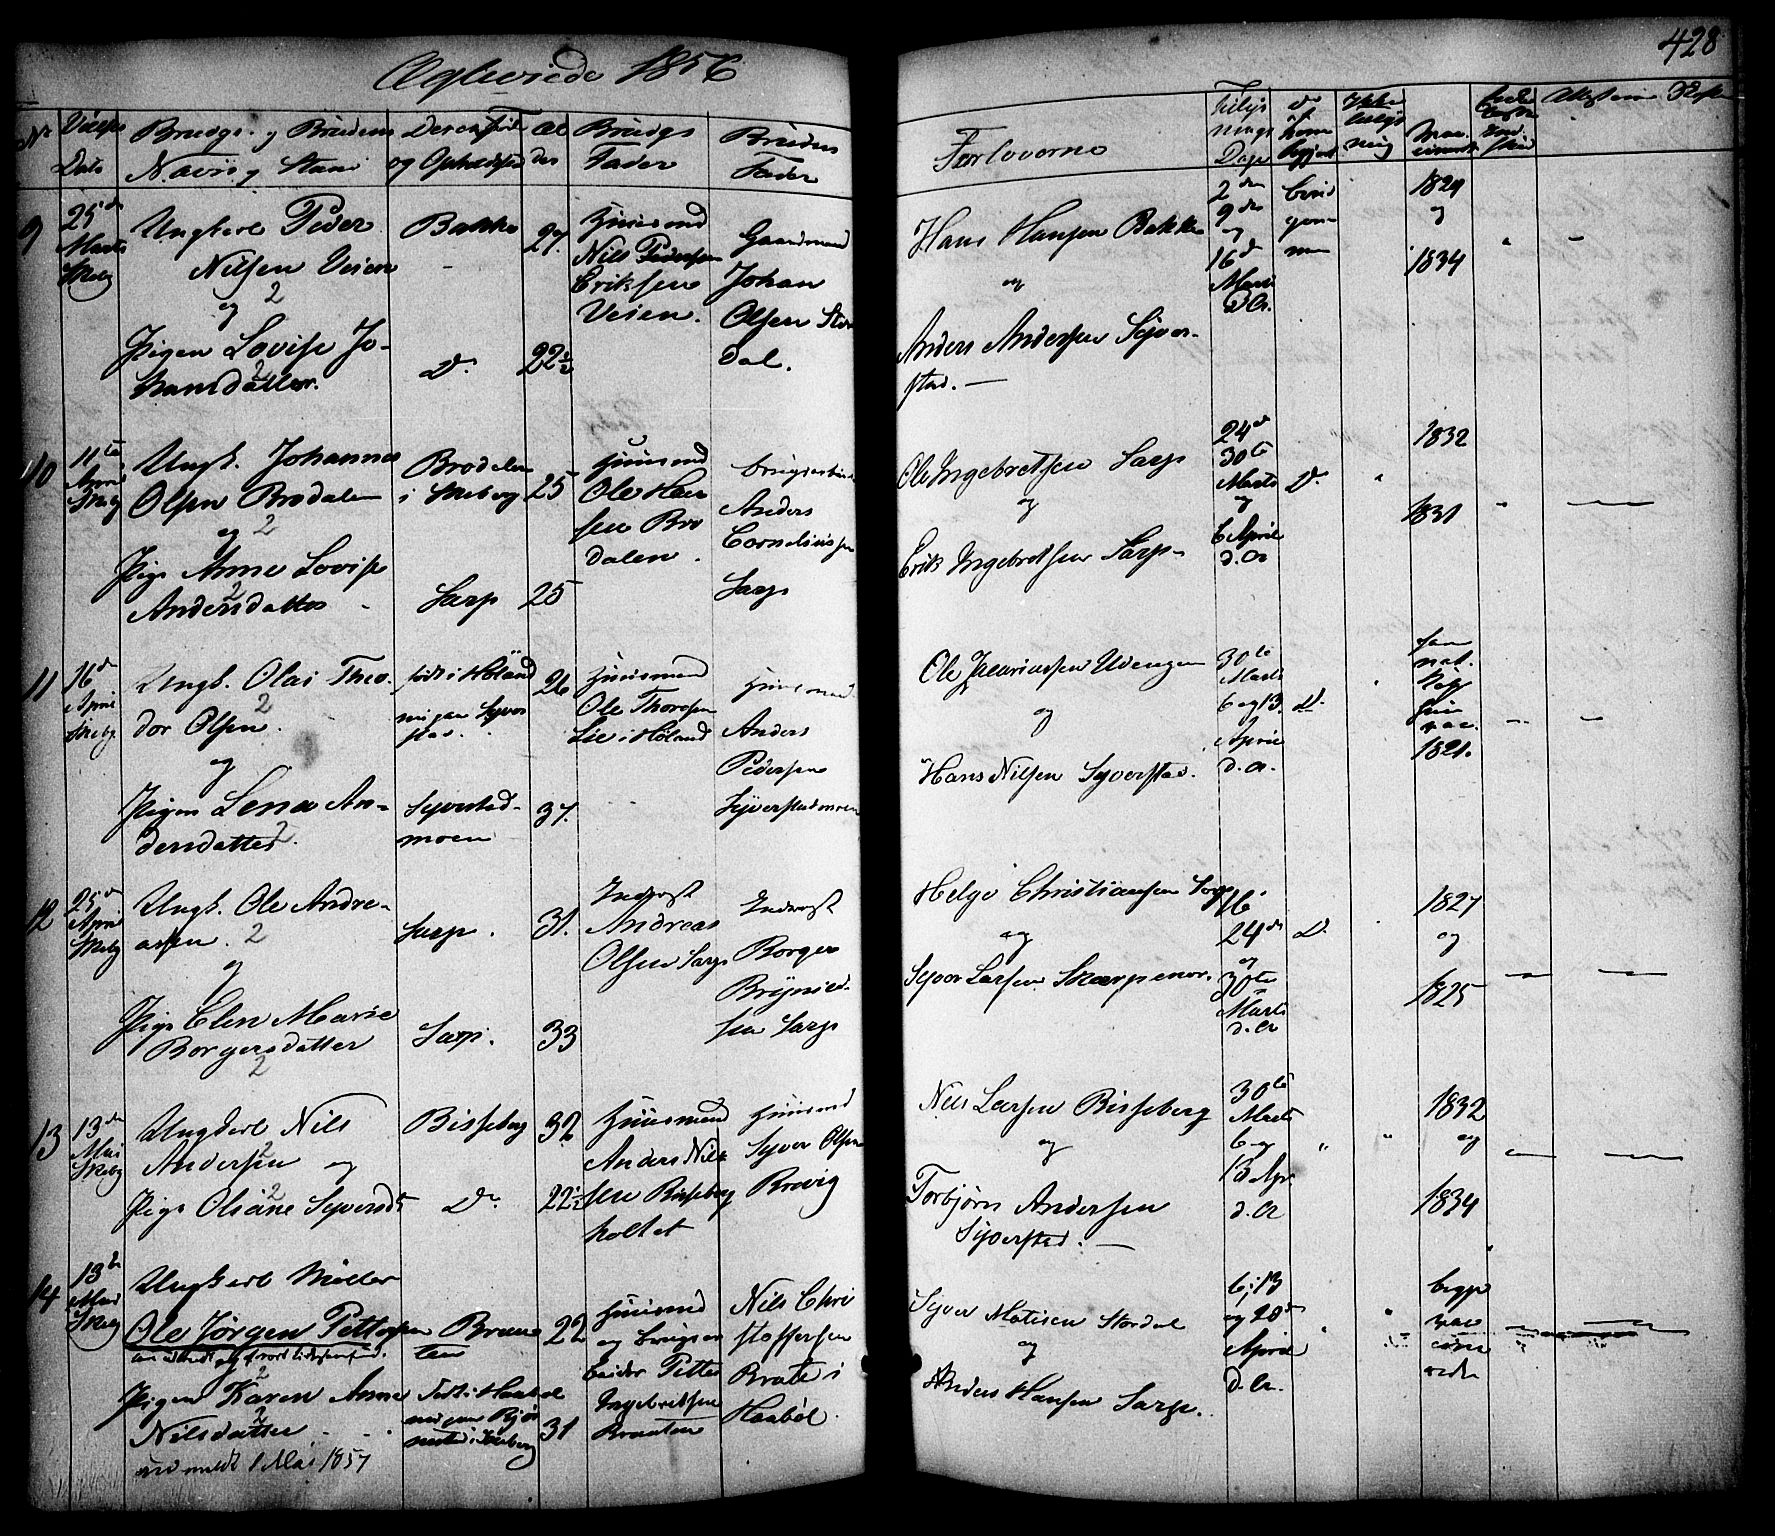 Ægteviede 1856
428
No
Vielses
Dato
Brudgs. og Brudens
Navn og Stand
Deres Føde
og Opholdssted
Al
der
Brudgs
Fader
Brudens
Fader
Forloverne
Tillys
nings
Dage
Ikke
1829
og
1834
9
25de
Marts
Skibg
Ungkarl Peder
Nilsen Veien
2
og
Pigen Lovise Jo-
hansdatter.
2
Bakke
Do
27.
22½
Huusmand
Nils Pedersen
Eriksen
Veien.
Gaardmand
Johan
Olsen Stor
dal.
Hans Hansen Bakke
og
Anders Andersen Syver-
stad. —
2den
9de
og
16de
Marts
d.A.
10
11te
April
Skibg
Ungk. Johannes
Olsen Brodalen
og 2
Pige Anne Lovise
2
Andersdatter
Brodalen
i Skiberg
Sarp
25
25
Huusmd
Ole Han
sen Bro
dalen.
Anders
Corneliussen
Sarp
Ole Ingebretsen Sarp
og
Erik Ingebretsen Sarp
24de
30te
Marts
og
6 April
d.A
Do
1832
1831
11
16de
April
Skibg
Ungk. Olai Theo-
dor Olsen.
2
og
Pigen Lena An-
dersdatter.
2
født i Høland
Syverstad-
moen
26
37.
Huusmand
Ole Thoresen
Lie i Høland
Huusmand
Anders
Pedersen
Syverstadmoen
Ole Zacariassen Uengen
og
Hans Nilsen Syverstad.
30te
Marts
6 og 13.
April
d.A.
Do
1821.
12
25de
April
Skibg
Ungk. Ole Andre-
assen. 2
og
Pige Elen Marie
Borgersdatter
2
Sarp.
Sarp.
31.
33
Inderst
Andreas
Olsen Sarp
Inderst
Borger
Brynild-
sen Sarp
Helge Christiansen Sarp
og
Syver Larsen Skarpenor.
16.
24de
og
30te
Marts
d.A
Do
1827
og
1825
13
13de
Mai
Skibg
Ungkarl Nils
Andersen og
2
Pige Olsine Syversdt
2
Bisseberg
Do
32
22½
Huusmand
Anders Nils
sen Bisseberg
holtet
Huusmd
Syver Olsen
Brevig
Nils Larsen Bisseberg
og
Torbjørn Andersen
Syverstad. —
30te
Marts
6 og
13 Apr
d.A
1832
og
1834
14
13de
Mai
Skibg
Ungkarl Møller
Ole Jørgen Pettersen
2
Pigen Karen Anne
2
Nilsdatter
ud meldt 1 Mai 1857
Braaten
Født i Haabøl
22
31
Huusmand
Petter
Ingebretsen
Braaten
Nils Chri
stoffersen
Brate i
Haabøl.
Syver Matisen Stordal
og
Anders Hansen Sarp.
6; 13
og 20de
April
d.A.
begge
vac
cine
rede